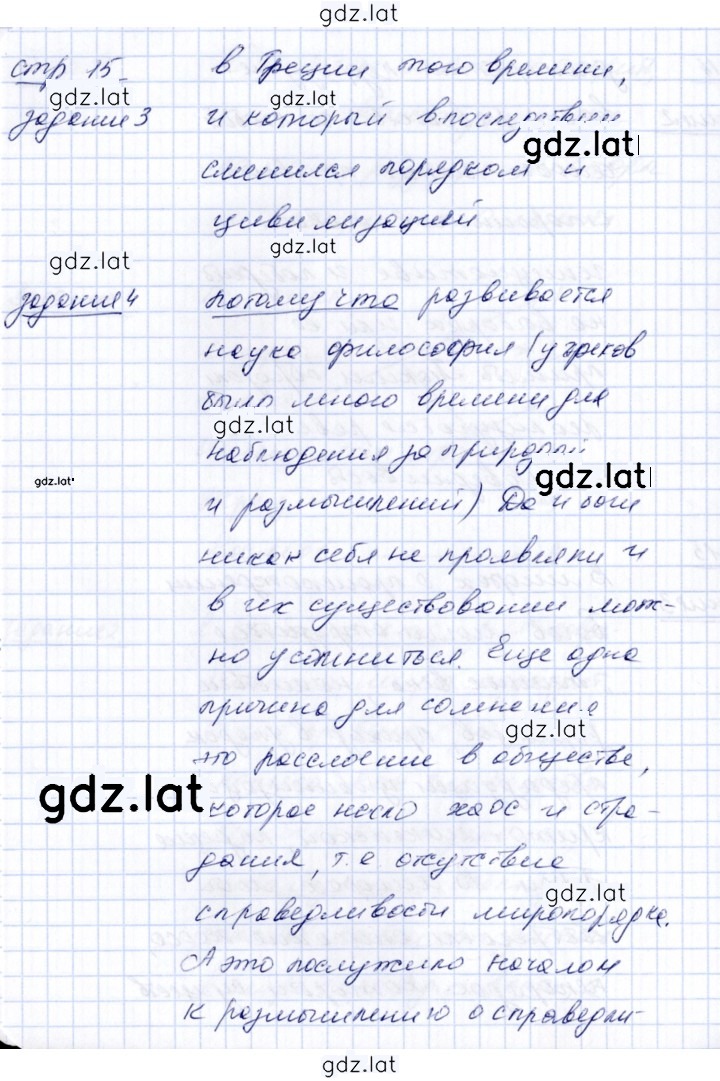 gdz.lat
стр 15.
в Греции того времени,
gdz.lat
задание 3
и который впоследствии
gdz.lat
сменился порядком и
цивилизацией
gdz.lat
gdz.lat
задание 4
потому что развивается
наука философия (у греков
было много времени для
gdz.lat
наблюдения за природой
gdz.lat
gdz.lat
и размышлений) Да и боги
никак себя не проявляли и
в их существовании мож-
но усомниться. Еще одна
причина для сомнения
gdz.lat
это расслоение в обществе,
gdz.lat
которое несло хаос и стра-
дания, т.е. отсутствие
gdz.lat
справедливости миропорядка.
А это послужило началом
к размышлению о справедли-
gdz.lat